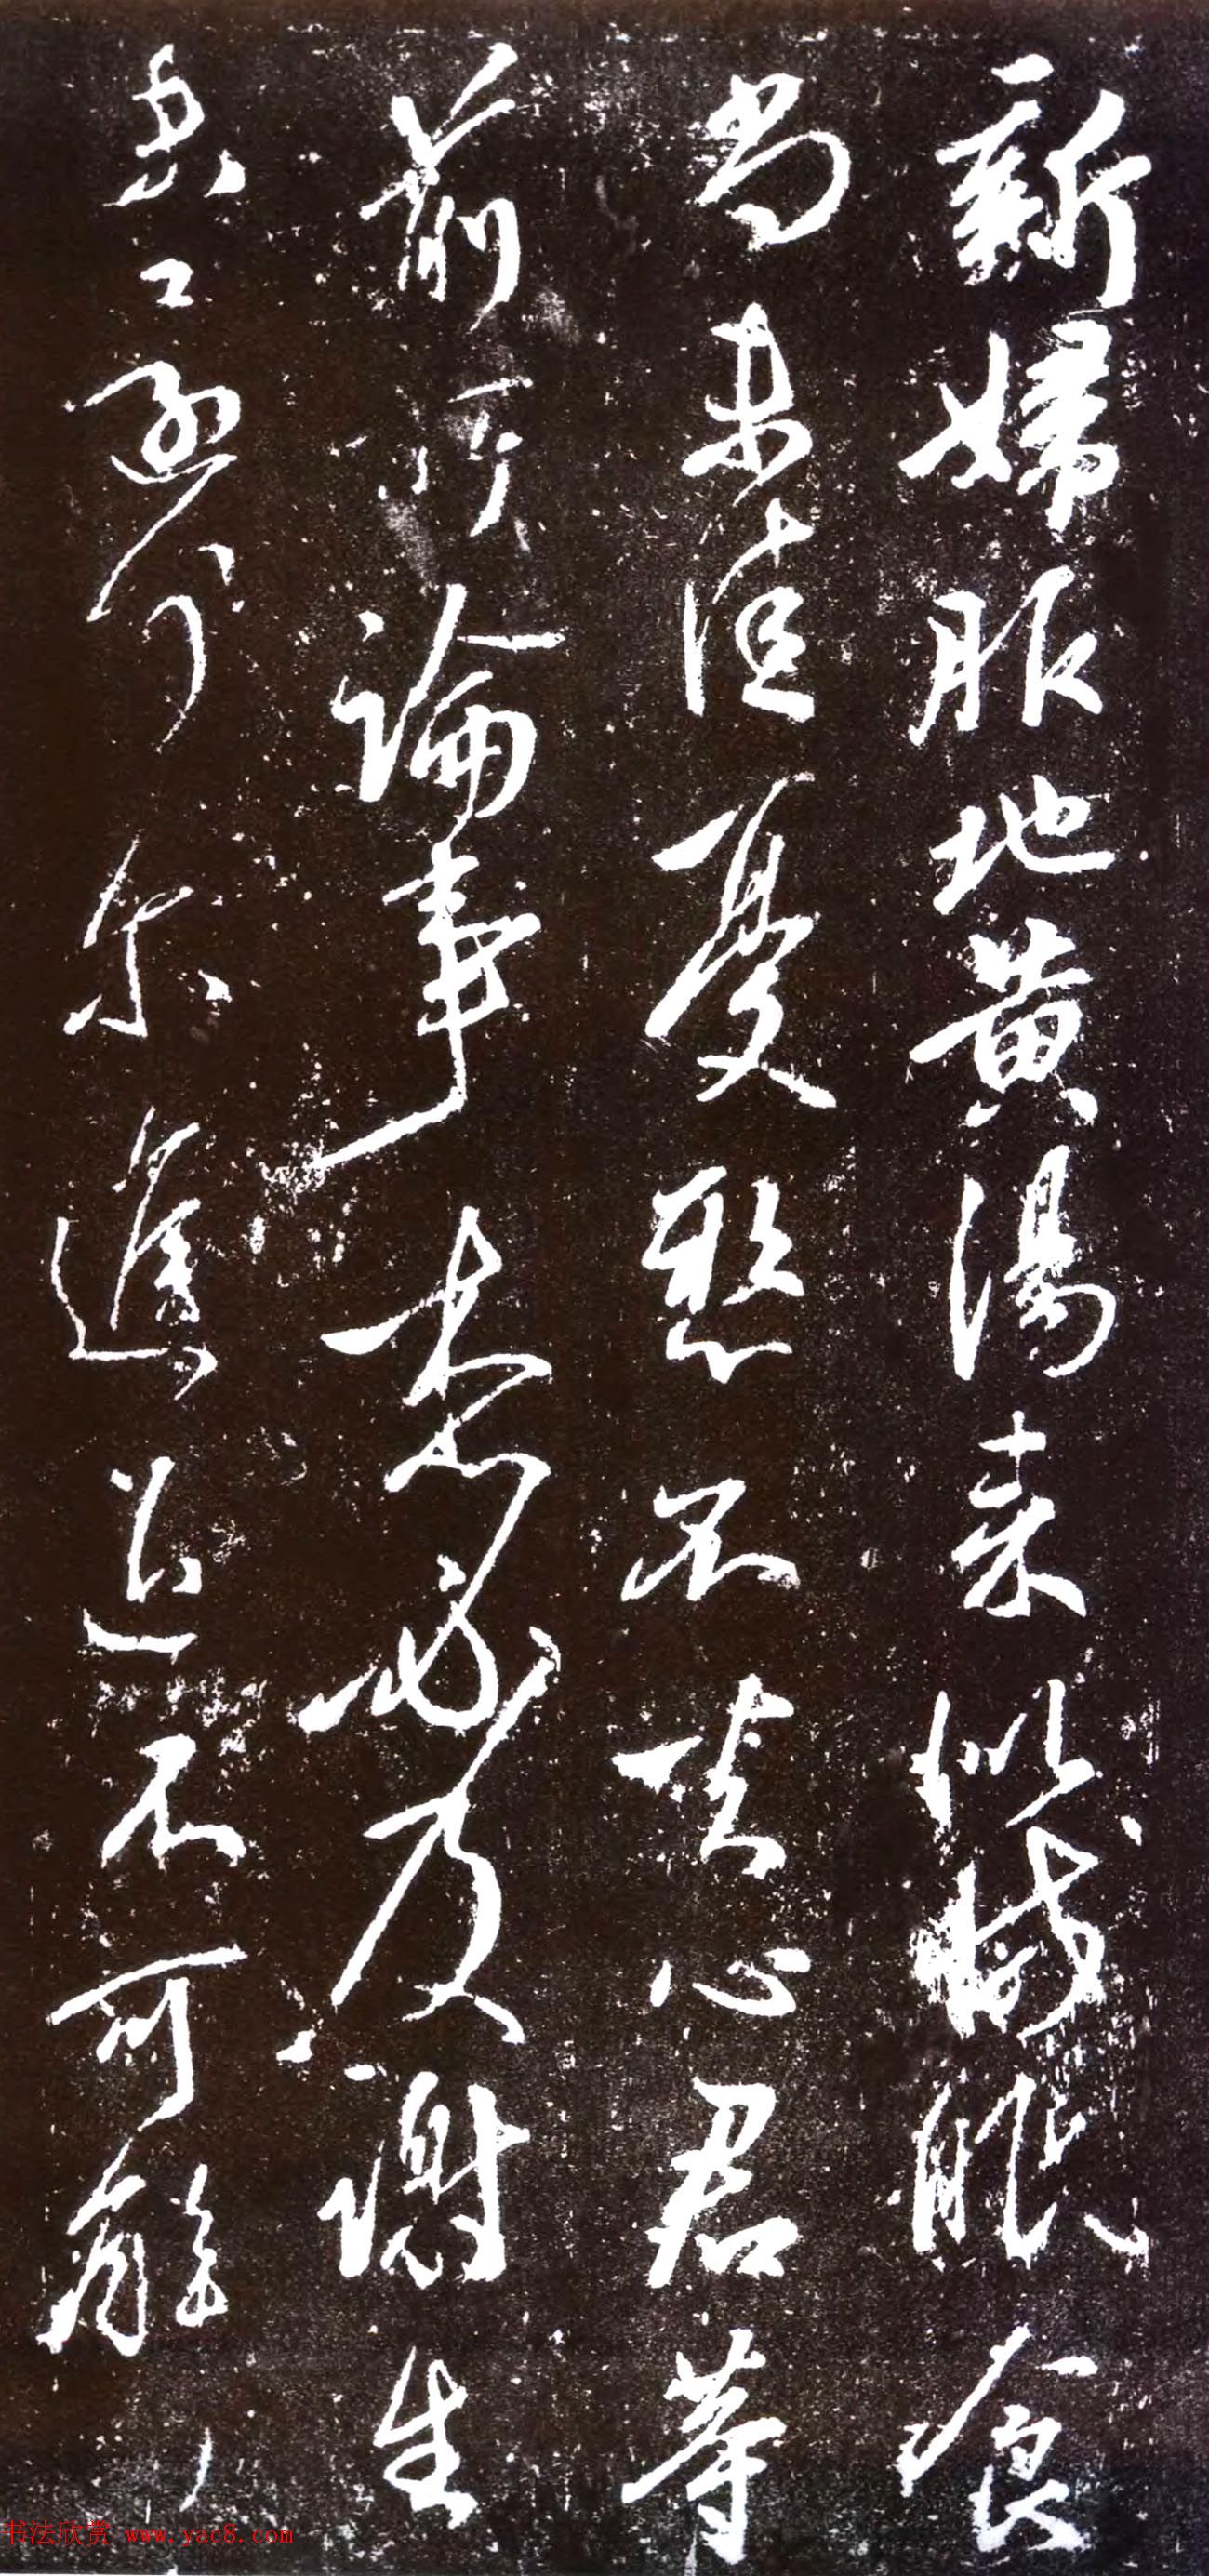 新婦服地黄湯来似減眠食
尚未佳憂懸不去心君等
前所論事想必及謝生
未還何尔進退不可解
书法欣赏 www.yac8.com